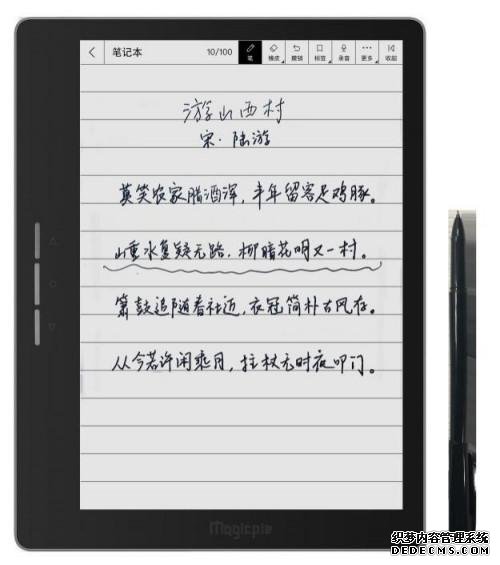 笔记本 10/100 笔 橡皮 撤销 标签 录音 更多 收起
游山西村
宋·陆游
莫笑农家腊酒浑，丰年留客足鸡豚。
山重水复疑无路，柳暗花明又一村。
箫鼓追随春社近，衣冠简朴古风存。
从今若许闲乘月，拄杖无时夜叩门。
Magicpie
织梦内容管理系统
DEDECMS.COM